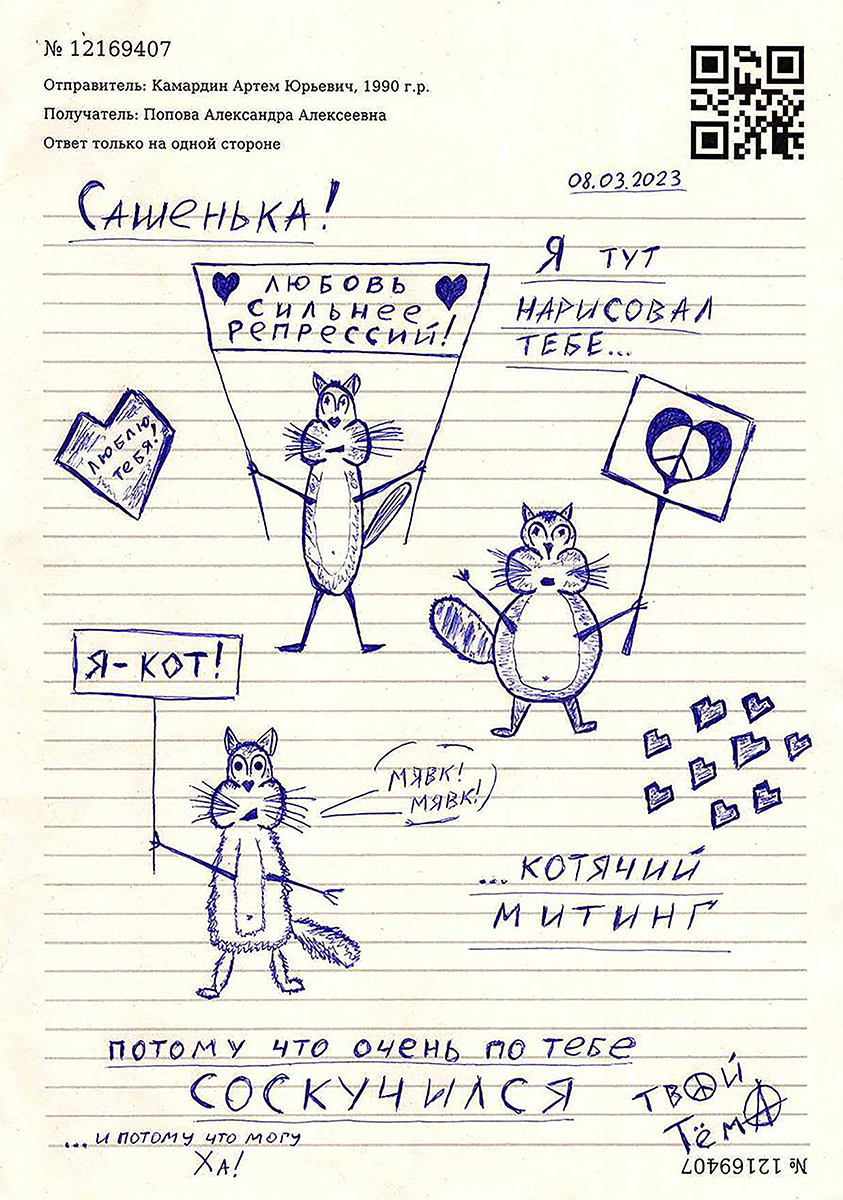 № 12169407
Отправитель: Камардин Артем Юрьевич, 1990 г.р.
Получатель: Попова Александра Алексеевна
Ответ только на одной стороне
08.03.2023
Сашенька!
Я тут
нарисовал
тебе...
Любовь
сильнее
репрессий!
Люблю
тебя!
Я-кот!
Мявк!
Мявк!
...котячий
митинг
потому что очень по тебе
соскучился
...и потому что могу
Ха!
Твой
Тёма
№ 12169407